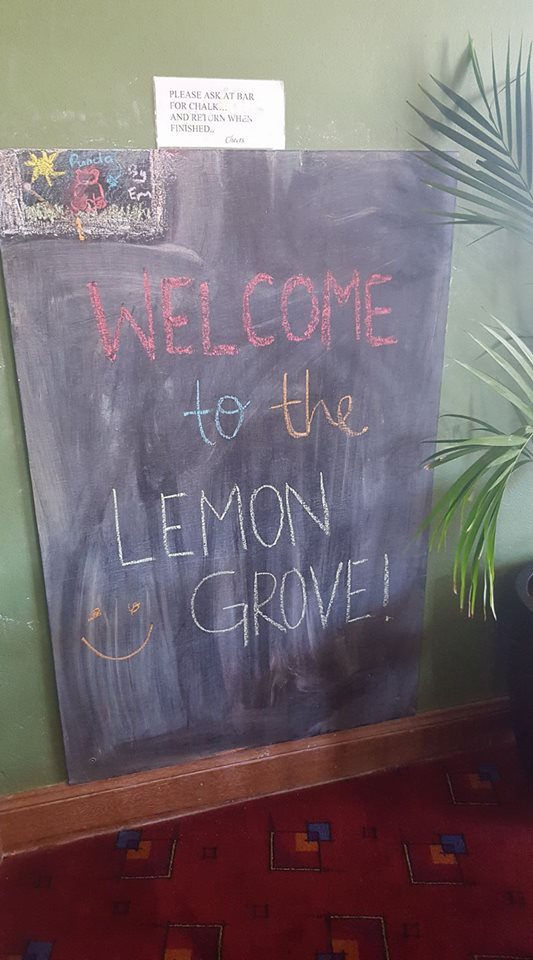 PLEASE ASK AT BAR
FOR CHALK...
AND RETURN WHEN
FINISHED..
Cheers
Panda
By
Emy
WELCOME
to the
LEMON
GROVE!